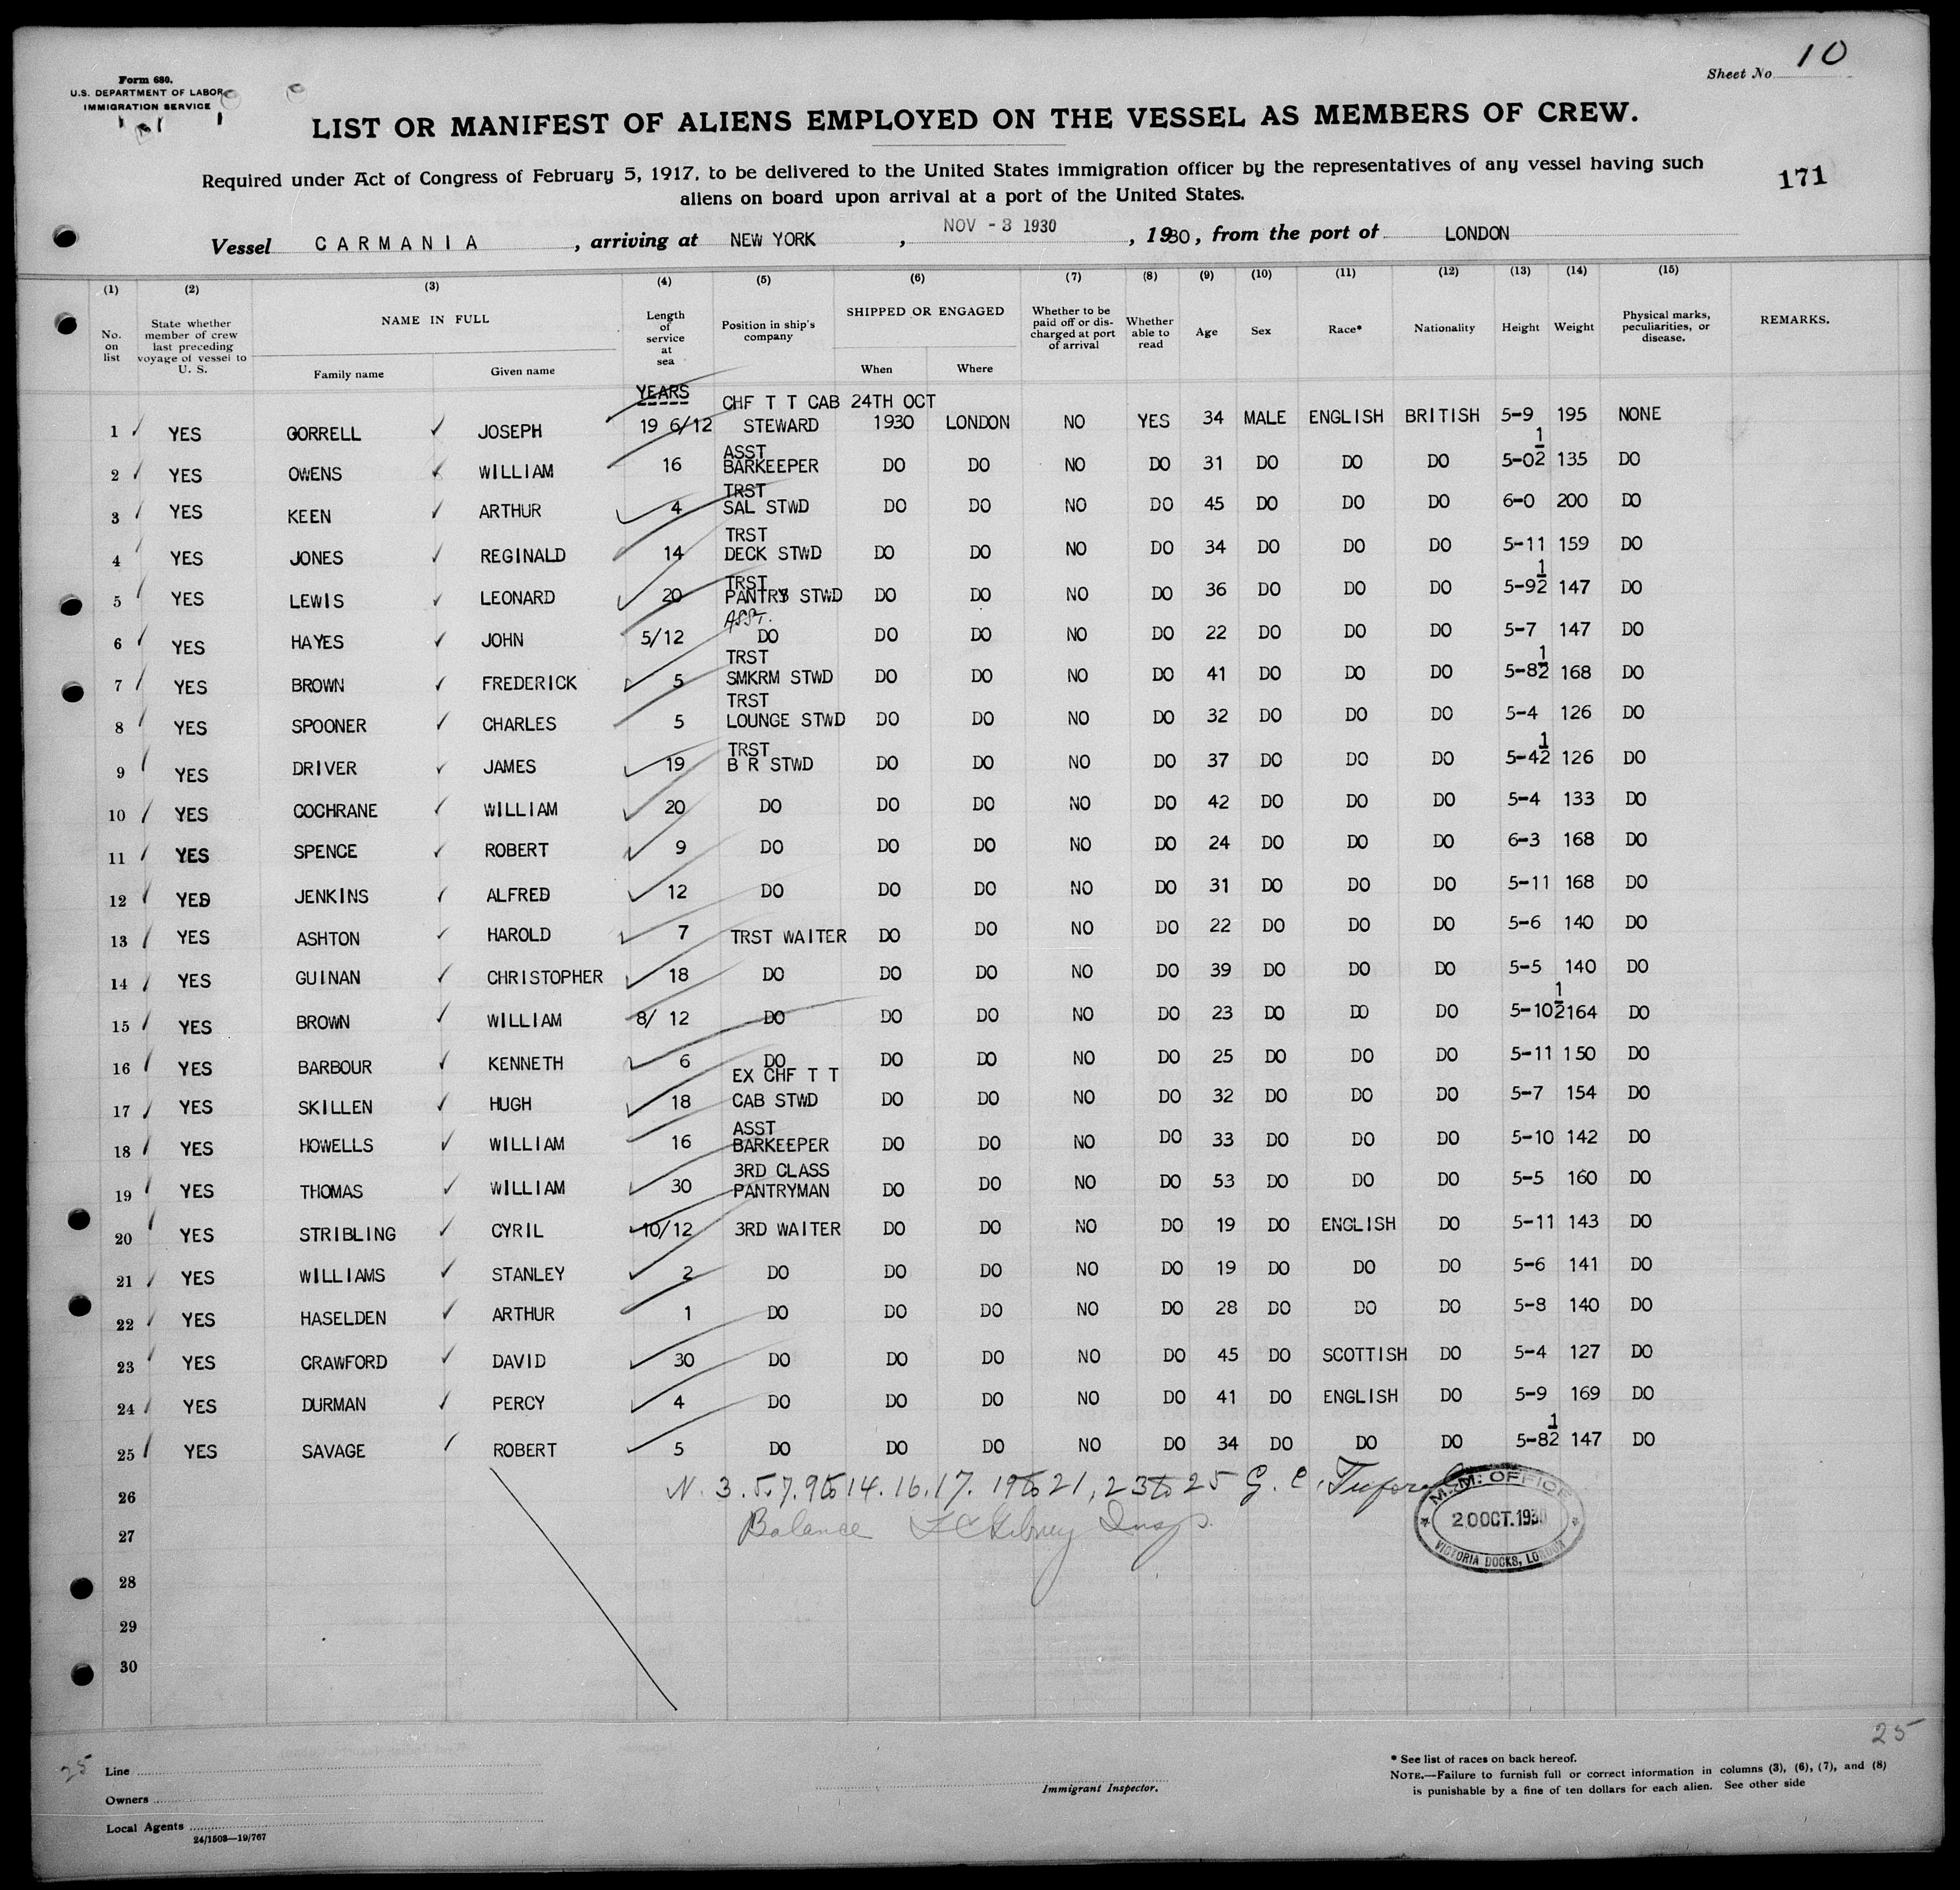 Form 680.
U.S. DEPARTMENT OF LABOR
IMMIGRATION SERVICE
Sheet No 10
LIST OR MANIFEST OF ALIENS EMPLOYED ON THE VESSEL AS MEMBERS OF CREW.
Required under Act of Congress of February 5, 1917, to be delivered to the United States immigration officer by the representatives of any vessel having such
aliens on board upon arrival at a port of the United States.
171
Vessel CARMANIA , arriving at NEW YORK , NOV - 3 1930 , 1930, from the port of LONDON
(1) (2) (3) (4) (5) (6) (7) (8) (9) (10) (11) (12) (13) (14) (15)
No. on list State whether member of crew last preceding voyage of vessel to U. S. NAME IN FULL Length of service at sea Position in ship's company SHIPPED OR ENGAGED Whether to be paid off or discharged at port of arrival Whether able to read Age Sex Race* Nationality Height Weight Physical marks, peculiarities, or disease. REMARKS.
Family name Given name When Where
YEARS CHF T T CAB 24TH OCT
1 YES GORRELL JOSEPH 19 6/12 STEWARD 1930 LONDON NO YES 34 MALE ENGLISH BRITISH 5-9 195 NONE
ASST
2 YES OWENS WILLIAM 16 BARKEEPER DO DO NO DO 31 DO DO DO 5-0½ 135 DO
TRST
3 YES KEEN ARTHUR 4 SAL STWD DO DO NO DO 45 DO DO DO 6-0 200 DO
TRST
4 YES JONES REGINALD 14 DECK STWD DO DO NO DO 34 DO DO DO 5-11 159 DO
TRST
5 YES LEWIS LEONARD 20 PANTRY STWD DO DO NO DO 36 DO DO DO 5-9½ 147 DO
ASST.
6 YES HAYES JOHN 5/12 DO DO DO NO DO 22 DO DO DO 5-7 147 DO
TRST
7 YES BROWN FREDERICK 5 SMKRM STWD DO DO NO DO 41 DO DO DO 5-8½ 168 DO
TRST
8 YES SPOONER CHARLES 5 LOUNGE STWD DO DO NO DO 32 DO DO DO 5-4 126 DO
TRST
9 YES DRIVER JAMES 19 B R STWD DO DO NO DO 37 DO DO DO 5-4½ 126 DO
10 YES COCHRANE WILLIAM 20 DO DO DO NO DO 42 DO DO DO 5-4 133 DO
11 YES SPENCE ROBERT 9 DO DO DO NO DO 24 DO DO DO 6-3 168 DO
12 YES JENKINS ALFRED 12 DO DO DO NO DO 31 DO DO DO 5-11 168 DO
13 YES ASHTON HAROLD 7 TRST WAITER DO DO NO DO 22 DO DO DO 5-6 140 DO
14 YES GUINAN CHRISTOPHER 18 DO DO DO NO DO 39 DO DO DO 5-5 140 DO
15 YES BROWN WILLIAM 8/ 12 DO DO DO NO DO 23 DO DO DO 5-10½ 164 DO
16 YES BARBOUR KENNETH 6 DO DO DO NO DO 25 DO DO DO 5-11 150 DO
EX CHF T T
17 YES SKILLEN HUGH 18 CAB STWD DO DO NO DO 32 DO DO DO 5-7 154 DO
ASST
18 YES HOWELLS WILLIAM 16 BARKEEPER DO DO NO DO 33 DO DO DO 5-10 142 DO
3RD CLASS
19 YES THOMAS WILLIAM 30 PANTRYMAN DO DO NO DO 53 DO DO DO 5-5 160 DO
20 YES STRIBLING CYRIL 10/12 3RD WAITER DO DO NO DO 19 DO ENGLISH DO 5-11 143 DO
21 YES WILLIAMS STANLEY 2 DO DO DO NO DO 19 DO DO DO 5-6 141 DO
22 YES HASELDEN ARTHUR 1 DO DO DO NO DO 28 DO DO DO 5-8 140 DO
23 YES CRAWFORD DAVID 30 DO DO DO NO DO 45 DO SCOTTISH DO 5-4 127 DO
24 YES DURMAN PERCY 4 DO DO DO NO DO 41 DO ENGLISH DO 5-9 169 DO
25 YES SAVAGE ROBERT 5 DO DO DO NO DO 34 DO DO DO 5-8½ 147 DO
26 N. 3. 5. 7. 9 to 14. 16. 17. 19 to 21, 23 to 25 G. C.
27 Balance Insp.
M.M. OFFICE
20 OCT. 1930
VICTORIA DOCKS, LONDON
28
29
30
25
25
Line
Owners
Local Agents
24/1508—19/767
Immigrant Inspector.
* See list of races on back hereof.
NOTE.—Failure to furnish full or correct information in columns (3), (6), (7), and (8)
is punishable by a fine of ten dollars for each alien. See other side